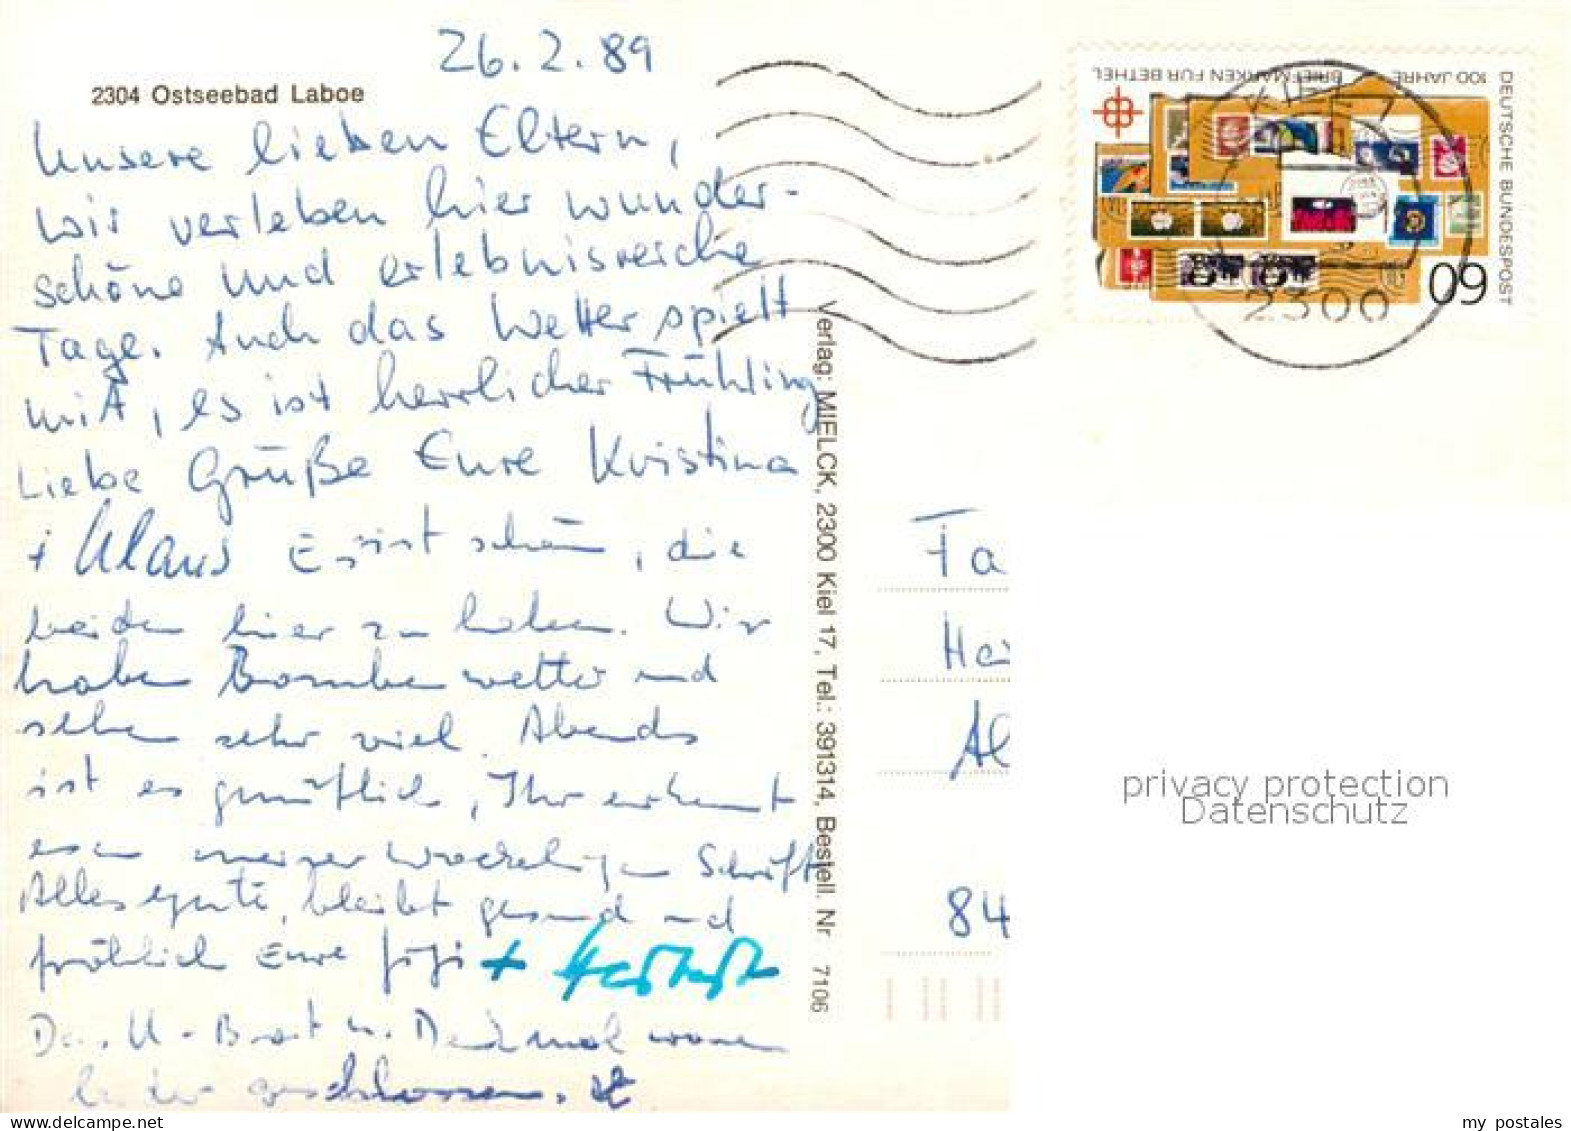 26.2.89
2304 Ostseebad Laboe
Unsere lieben Eltern,
wir verleben hier wunder-
schöne und erlebnisreiche
Tage. Auch das Wetter spielt
mit, es ist herrlicher Frühling
Liebe Grüße Eure Kristina
+ Klaus Es ist schön, die
beiden hier zu haben. Wir
haben Bombenwetter und
sehen sehr viel. Abends
ist es gemütlich, Ihr erkennt
es an meiner wackeligen Schrift
Alles gute, bleibt gesund und
fröhlich Eure + Herbert
Das U-Boot u. Denkmal waren
leider geschlossen.
Verlag: MIELCK, 2300 Kiel 17, Tel.: 391314, Bestell. Nr 7106
DEUTSCHE BUNDESPOST
100 JAHRE BRIEFMARKEN FÜR BETHEL
60
KIEL 1
2300
Fa
Hei
Al
84
privacy protection
Datenschutz
my postales